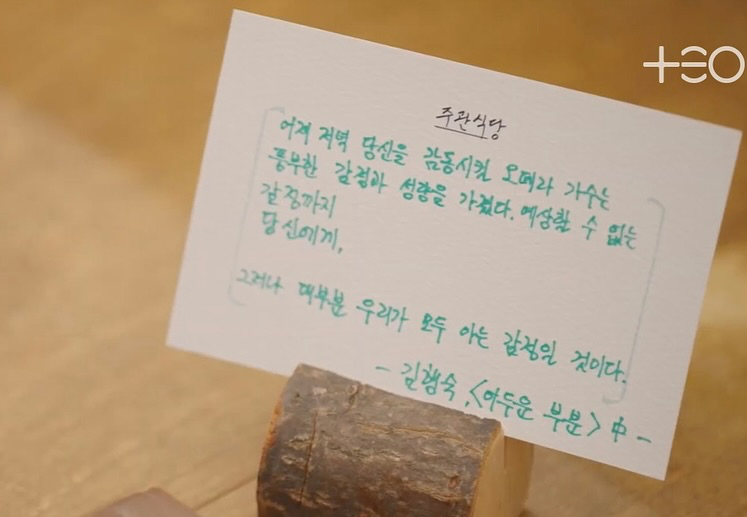 TEO
주관식당
어제 저녁 당신을 감동시킬 오페라 가수는
풍부한 감정과 성량을 가졌다. 예상할 수 없는
감정까지
당신에게,
그러나 대부분 우리가 모두 아는 감정일 것이다.
- 김행숙, <어두운 부분> 中 -